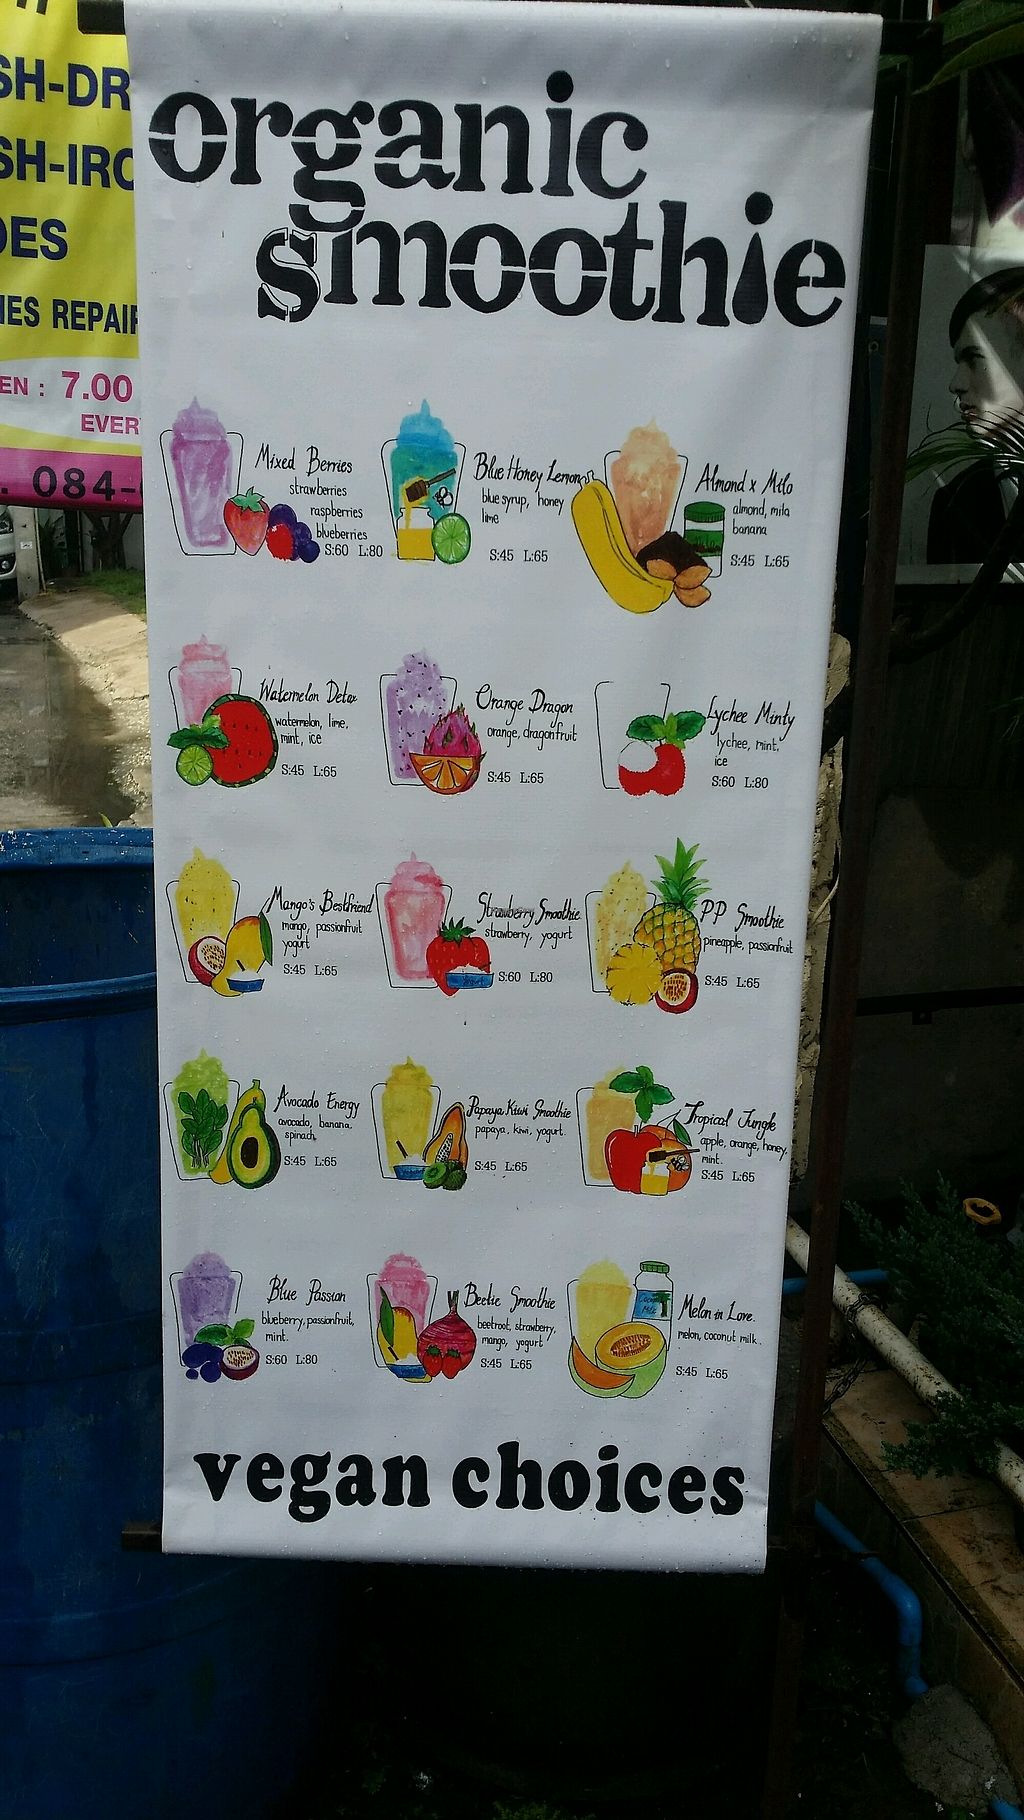 SH-DR
SH-IRO
DES
IES REPAIR
EN : 7.00
EVER
. 084-
organic
smoothie
Mixed Berries
strawberries
raspberries
blueberries
S:60 L:80
Blue Honey Lemon
blue syrup, honey
lime
S:45 L:65
Almond x Milo
almond, milo
banana
S:45 L:65
Watermelon Detox
watermelon, lime,
mint, ice
S:45 L:65
Orange Dragon
orange, dragonfruit
S:45 L:65
Lychee Minty
lychee, mint,
ice
S:60 L:80
Mango's Bestfriend
mango, passionfruit
yogurt
S:45 L:65
Strawberry Smoothie
strawberry, yogurt
S:60 L:80
PP Smoothie
pineapple, passionfruit
S:45 L:65
Avocado Energy
avocado, banana,
spinach
S:45 L:65
Papaya Kiwi Smoothie
papaya, kiwi, yogurt.
S:45 L:65
Tropical Jungle
apple, orange, honey,
mint.
S:45 L:65
Blue Passion
blueberry, passionfruit,
mint.
S:60 L:80
Beetie Smoothie
beetroot, strawberry,
mango, yogurt
S:45 L:65
Melon in Love.
melon, coconut milk.
S:45 L:65
vegan choices